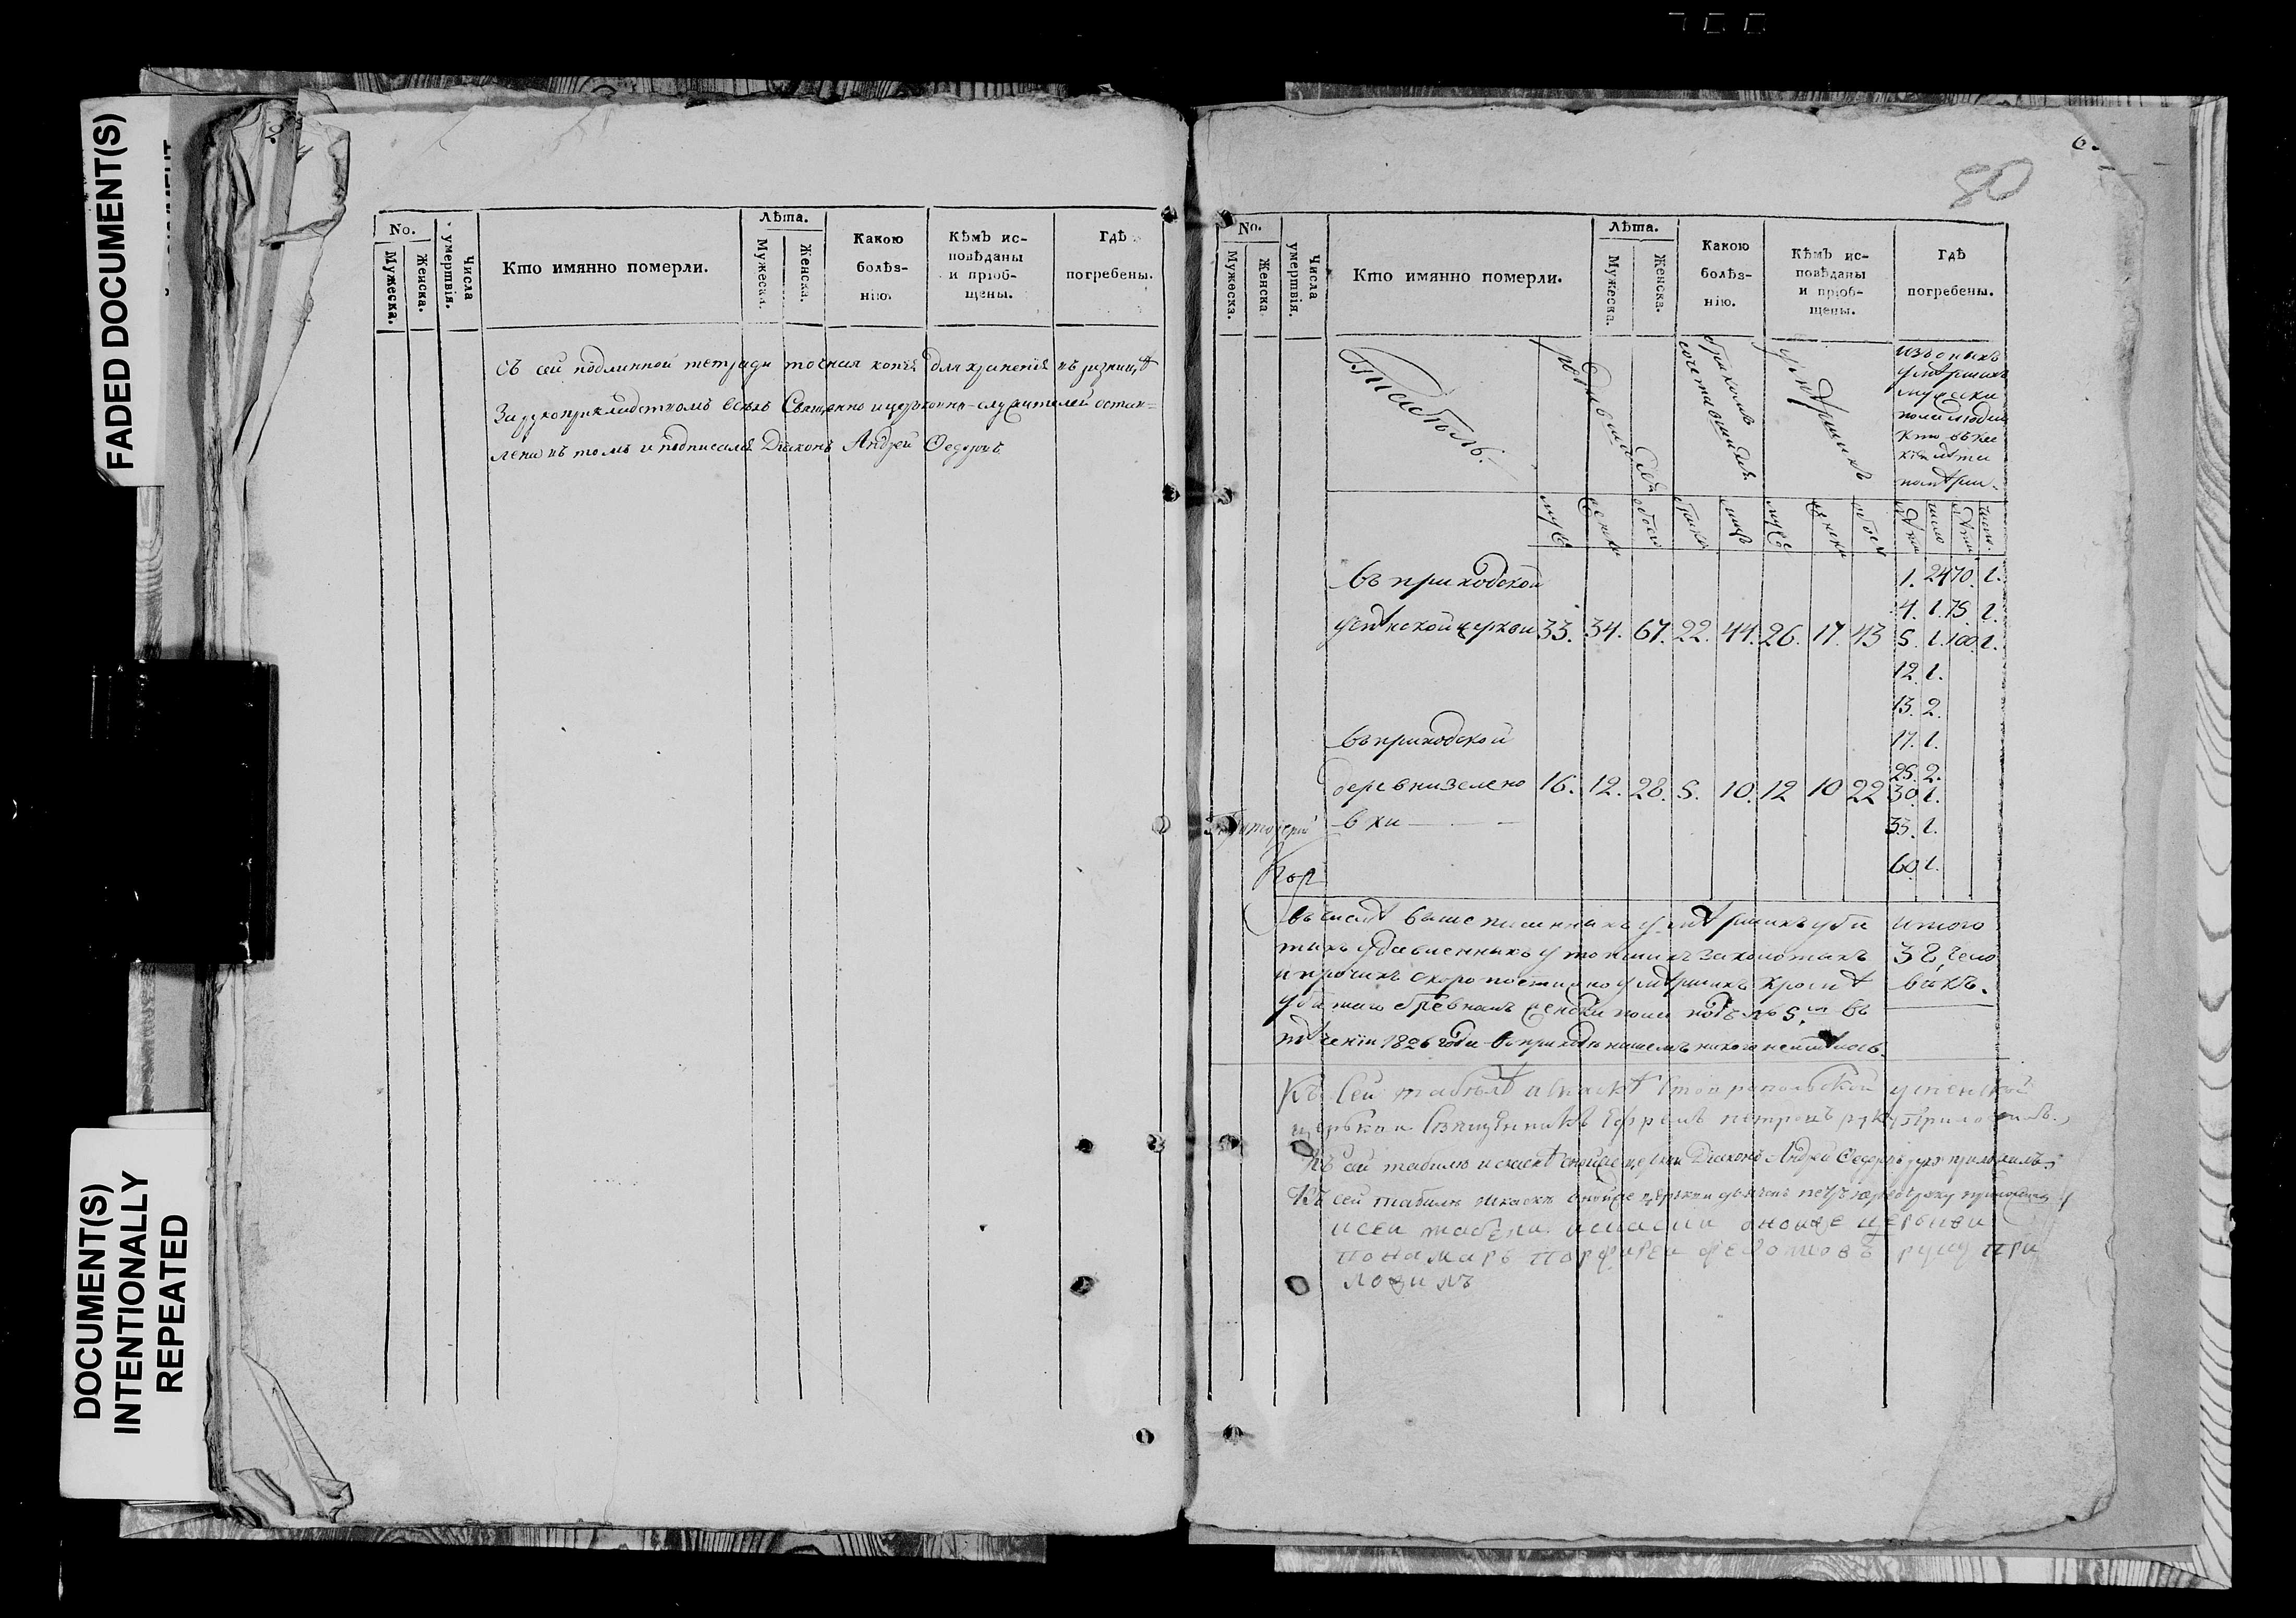 FADED DOCUMENT(S)
DOCUMENT(S)
INTENTIONALLY
REPEATED
No.
Мужеска.
Женска.
Числа умертвія.
Кто имянно померли.
Лѣта.
Мужеска.
Женска.
Какою
болѣз-
нію.
Кѣмъ ис-
повѣданы
и пріоб-
щены.
Гдѣ
погребены.
Съ сей подлинной тетради точная копія для храненія въ ризницѣ
За рукоприкладствомъ всѣхъ Священно и церковно-служителей остав-
лена въ томъ и подписался Діаконъ Андрей Федоровъ
80
No.
Мужеска.
Женска
Числа умертвія.
Кто имянно померли.
Лѣта.
Мужеска.
Женска.
Какою
болѣз-
нію.
Кѣмъ ис-
повѣданы
и пріоб-
щены.
Гдѣ
погребены.
Табель.
родившихся
бракомъ сочетавшихся
умѣршихъ
изъ оныхъ
умѣршихъ
мужеска
пола людей
кто въ кое
лѣта
помѣрли.
въ приходской
успѣнской церкви 33. 34. 67. 22. 44. 26. 17. 43
1. 24 70. 1.
4. 1. 75. 1.
5. 1. 100. 1.
12. 1.
13. 2.
17. 1.
25. 2.
30. 1.
33. 1.
60. 1.
въ приходской
деревни зелено 16. 12. 28. 5. 10. 12 10 22
вки
въ числѣ вышеписанныхъ умѣршихъ уби
тыхъ удавленныхъ утопшихъ заколотыхъ
и прочихъ скоропостижно умѣршихъ кромѣ
убитаго бревномъ женска пола подъ № 5.м въ
тѣченіи 1826 года въ приходѣ нашемъ никого неимѣлось.
итого
38, чело
вѣкъ.
Къ Сей табелѣ Ставропольской успенской
церькви Священникъ Ефремъ петровъ руку приложилъ.
Къ сей табелю оной же церкви Діаконъ Андрей Федоровъ руку приложилъ
Къ сей табелѣ оной же церькви дьячекъ руку приложилъ
ксеи табели оноиже церькви
понамарь порфиреи федотовъ руку при
ложилъ